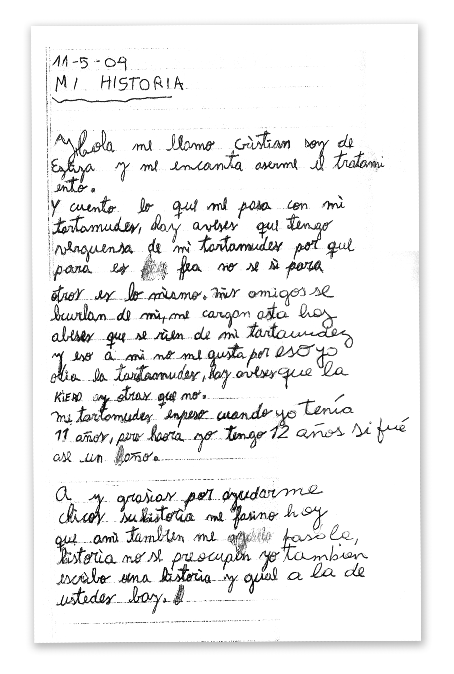 11-5-09
MI HISTORIA
Ay Hola me llamo Cristian soy de
Ezeiza y me encanta aserme el tratami
ento.
Y cuento lo que me pasa con mi
tartamudes, hay aveses que tengo
verguensa de mi tartamudes por que
para es fea no se si para
otros es lo mismo. mis amigos se
burlan de mi, me cargan asta hay
abeses que se rien de mi tartamudez
y eso a mi no me gusta por eso yo
odia la tartaamudes, hay aveses que la
KIERO ay otras que no.
mi tartamudes enpeso cuando yo tenía
11 años, pero haora yo tengo 12 años si fué
ase un año.
A y grasias por ayudarme
chicos su historia me hoy
que ami tambien me paso la,
historia no se preocupen yo tambien
escribo una historia y gual a la de
ustedes bay.